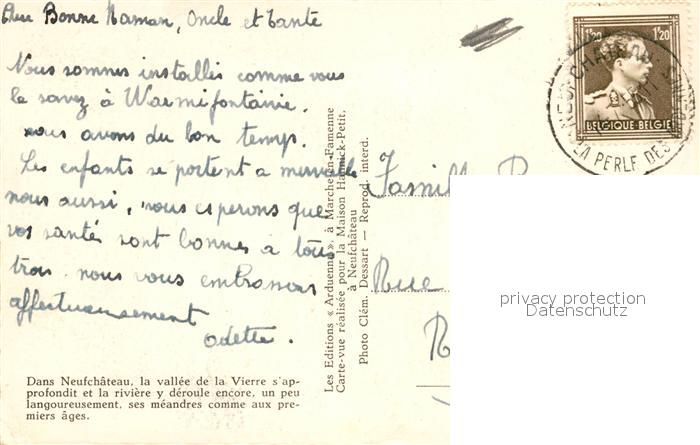 Bonne Maman, Oncle et Tante
Nous sommes installés comme vous
le savez à Warmifontaine.
nous avons du bon temps.
Les enfants se portent a merveille
nous aussi, nous esperons que
vos santés sont bonnes à tous
trois. nous vous embrassons
affectueusement
Odette.
Dans Neufchâteau, la vallée de la Vierre s'ap-
profondit et la rivière y déroule encore, un peu
langoureusement, ses méandres comme aux pre-
miers âges.
Les Editions « Arduenna », à Marche-en-Famenne
Carte-vue réalisée pour la Maison Hannick-Petit,
à Neufchâteau
Photo Clém. Dessart — Reprod. interd.
1.20 1.20
BELGIQUE BELGIE
NEUFCHATEAU
LA PERLE DES
Famille
Rue
privacy protection
Datenschutz